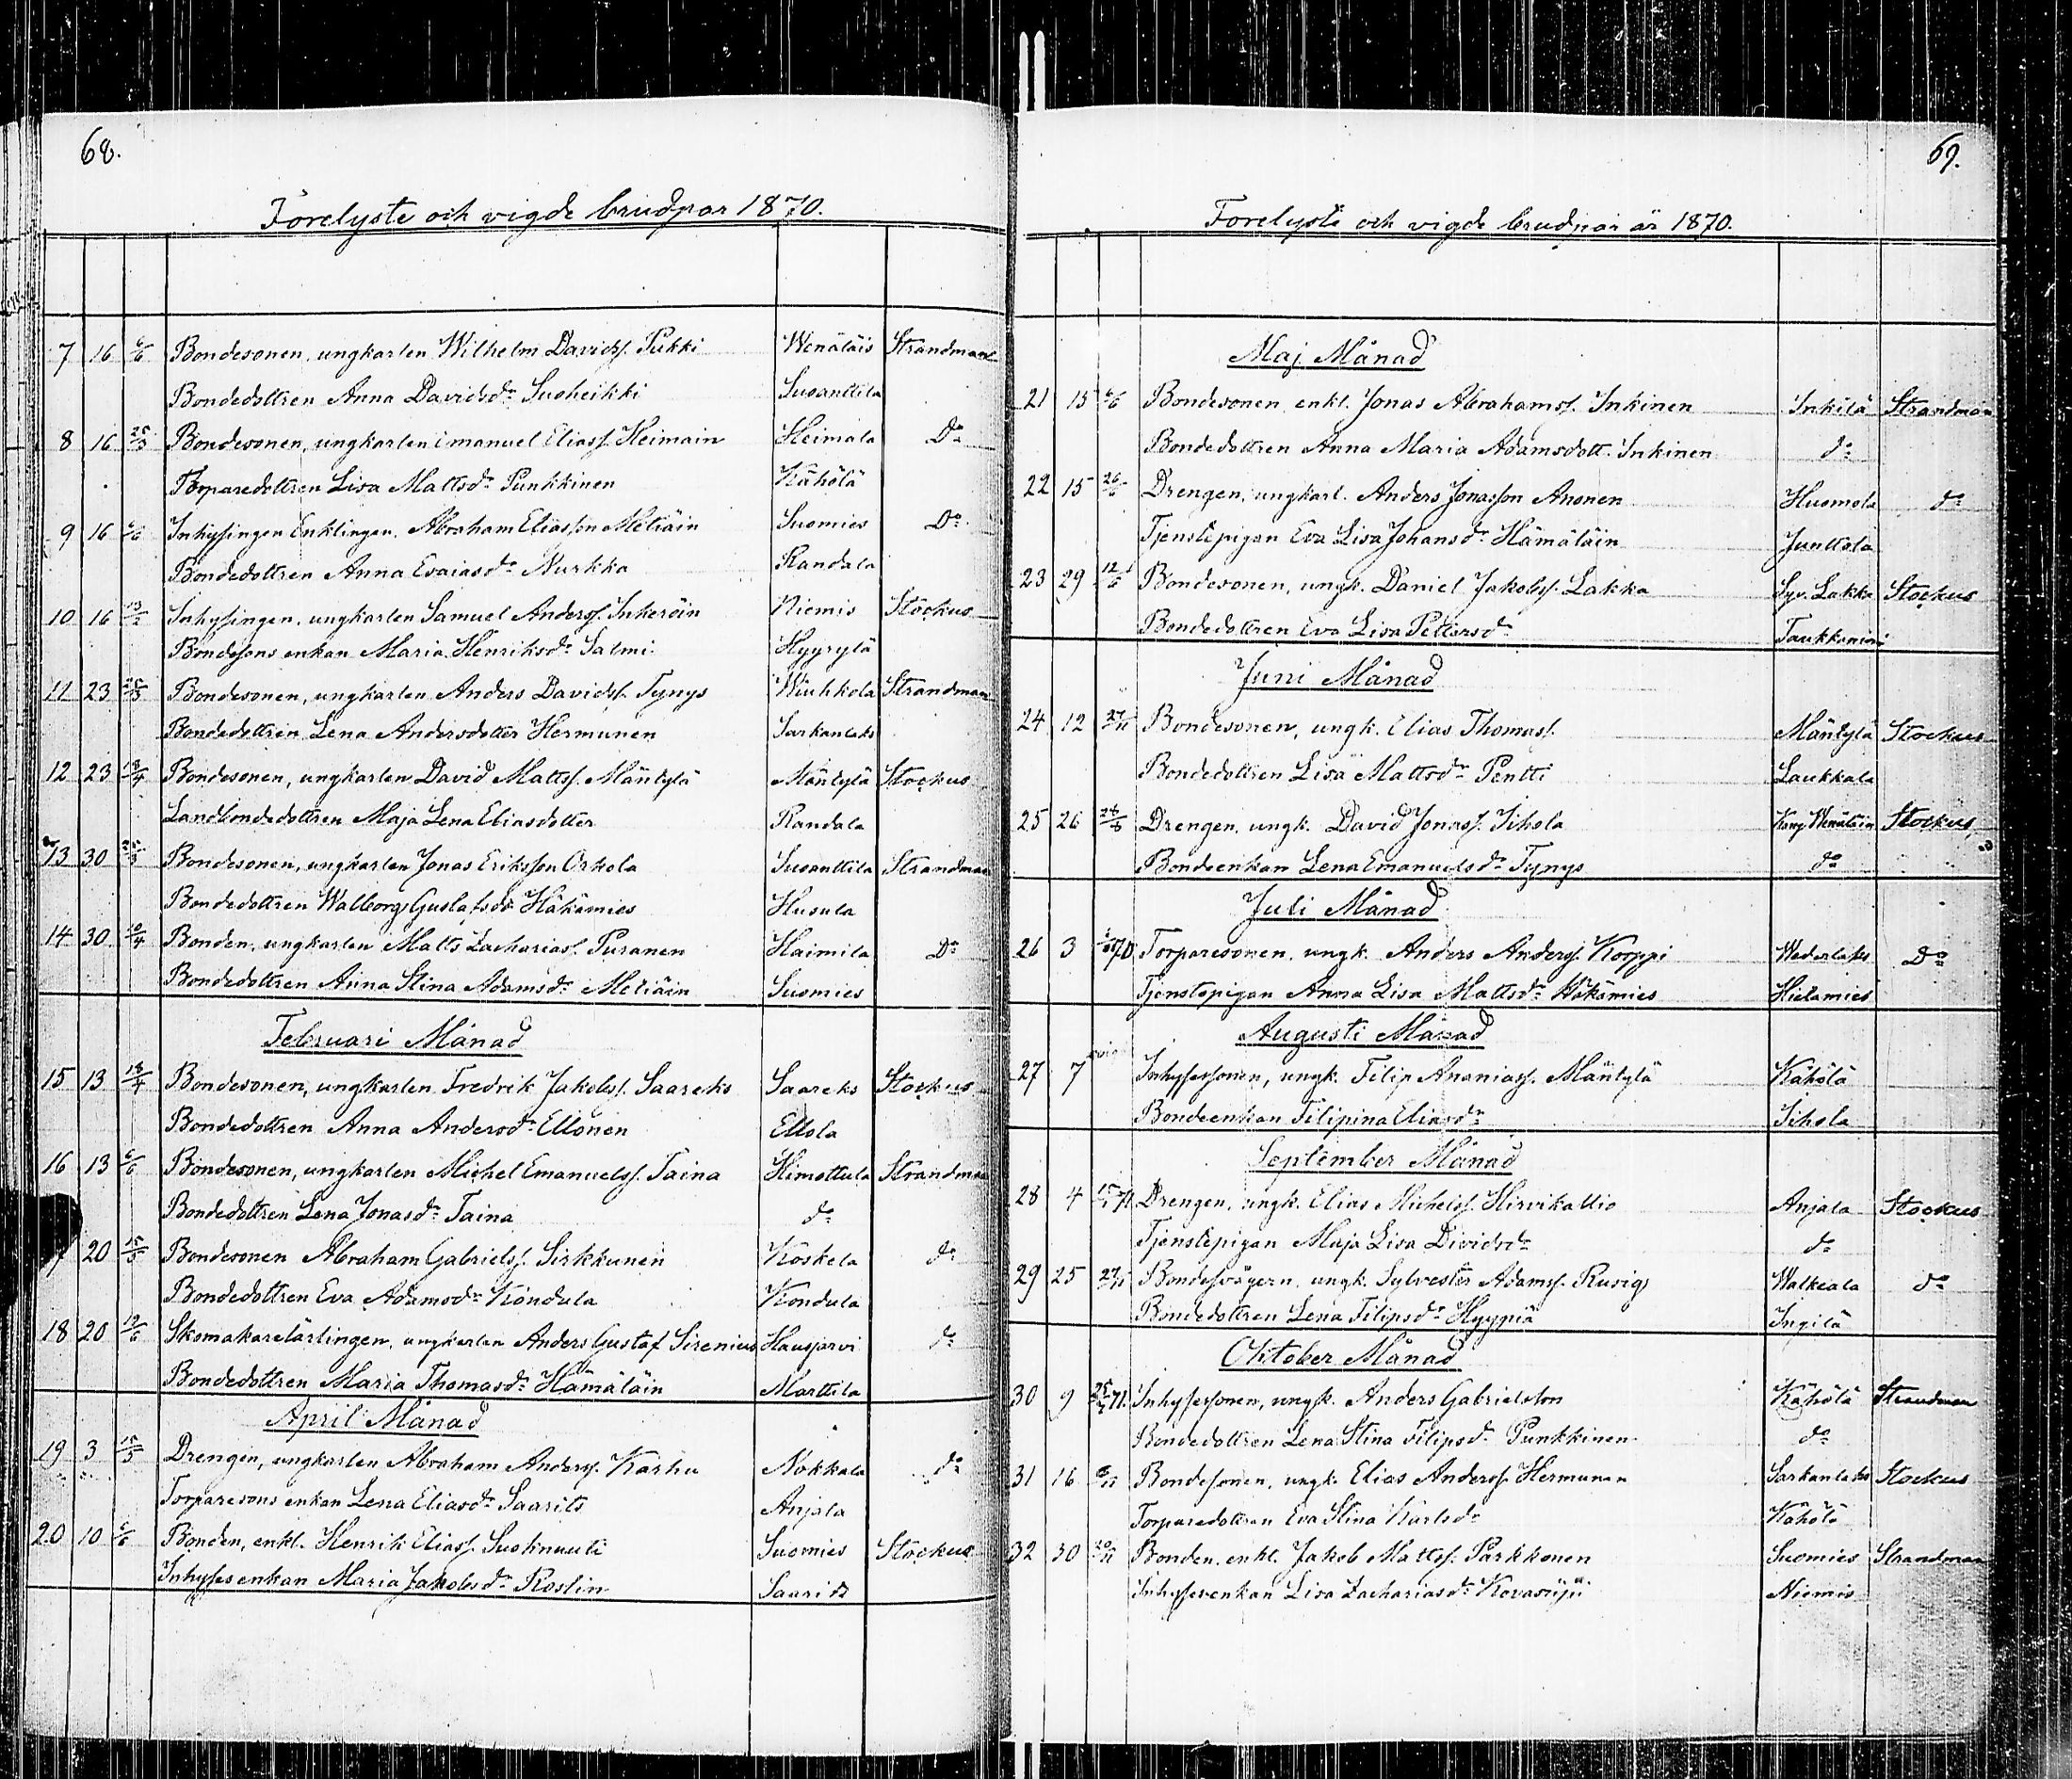 68.
Forelyste och vigde brudpar 1870.
7 16 6/6 Bondesonen, ungkarlen Wilhelm Davidss. Pukki Wenäläis Strandman
Bondedottren Anna Davidsdr Suoheikki Suoanttila
8 16 25/3 Bondesonen, ungkarlen Emanuel Eliass. Heimain Heimala Do
Torparedottren Lisa Mattsdr Punkkinen Kähölä
9 16 6/6 Inhysingen Enklingen, Abraham Eliasson Metiäin Suomies Do
Bondedottren Anna Esaiasdr Nurkka Randala
10 16 Inhysingen, ungkarlen Samuel Anderss. Inkeröin Niemis Stockus
Bondesons enkan Maria Henriksdr Salmi Hyyrylä
11 23 25/3 Bondesonen, ungkarlen Anders Davidss. Tynys Wiuhkola Strandman
Bondedottren Lena Andersdotter Hermunen Sarkanlaks
12 23 18/4 Bondesonen, ungkarlen David Mattss. Mäntylä Mäntylä Stockus
Landbondedottren Maja Lena Eliasdotter Randala
13 30 Bondesonen, ungkarlen Jonas Eriksson Orkola Suoanttila Strandman
Bondedottren Walborg Gustafsdr Häkämies Husula
14 30 Bonden, ungkarlen Matts Zachariass. Puranen Haimila Do
Bondedottren Anna Stina Adamsdr Metiäin Suomies
Februari Månad
15 13 18/4 Bondesonen, ungkarlen Fredrik Jakobss. Saareks Saareks Stockus
Bondedottren Anna Andersdr Ellonen Ellola
16 13 6/6 Bondesonen, ungkarlen Michel Emanuelss. Taina Himottula Strandman
Bondedottren Lena Jonasdr Taina do
7 20 15/5 Bondesonen Abraham Gabrielss. Sirkkunen Koskela do
Bondedottren Eva Adamsdr Kondula Kondula
18 20 12/6 Skomakarelärlingen, ungkarlen Anders Gustaf Sirenius Hausjärvi do
Bondedottren Maria Thomasdr Hämäläin Marttila
April Månad
19 3 15/5 Drengen, ungkarlen Abraham Anderss. Karhu Nokkala do
Torparesons enkan Lena Eliasdr Saarits Anjala
20 10 6/6 Bonden, enkl. Henrik Eliass. Suoknuuti Suomies Stockus
Inhyses enkan Maria Jakobsdr Roslin Saarits
69.
Forelyste och vigde brudpar år 1870.
Maj Månad
21 15 6/6 Bondesonen, enkl. Jonas Abrahamss. Inkinen Inkilä Strandman
Bondedottren Anna Maria Adamsdott. Inkinen do
22 15 26/6 Drengen, ungkarl. Anders Jonasson Anonen Huomola do
Tjenstepigan Eva Lisa Johansdr Hämäläin Junttola
23 29 12/6 Bondesonen, ungk. Daniel Jakobss. Lakka Syv. Lakka Stockus
Bondedottren Eva Lisa Pettersdr
Juni Månad
24 12 27/11 Bondesonen, ungk. Elias Thomass. Mäntylä Stockus
Bondedottren Lisa Mattsdr Pentti Laukkala
25 26 28/8 Drengen, ungk. David Jonass. Sihola Stockus
Bondeenkan Lena Emanuelsdr Tynys do
Juli Månad
26 3 Torparesonen, ungk. Anders Anderss. Korppi Wederlaks Do
Tjenstepigan Anna Lisa Mattsdr Häkämies Hietamies
Augusti Månad
27 7 Inhysessonen, ungk. Filip Ananiass. Mäntylä Kähölä
Bondeenkan Filipina Eliasdr Sihola
September Månad
28 4 Drengen, ungk. Elias Michelss. Hirvikallio Anjala Stockus
Tjenstepigan Maja Lisa Dividsdr do
29 25 27/11 Bondesvågern, ungk. Sylvester Adamss. Rusig Walkeala do
Bondedottren Lena Filipsdr Hyypiä Ingilä
Oktober Månad
30 9 Inhysessonen, ungk. Anders Gabrielsson Kähölä Strandman
Bondedottren Lena Stina Filipsdr Punkkinen do
31 16 Bondesonen, ungk. Elias Anderss. Hermunen Sarkanlaks Stockus
Torparedottren Eva Stina Karlsdr Kähölä
32 30 20/11 Bonden, enkl. Jakob Mattss. Parkkonen Suomies Strandman
Inhysesenkan Lisa Zachariasdr Niemis